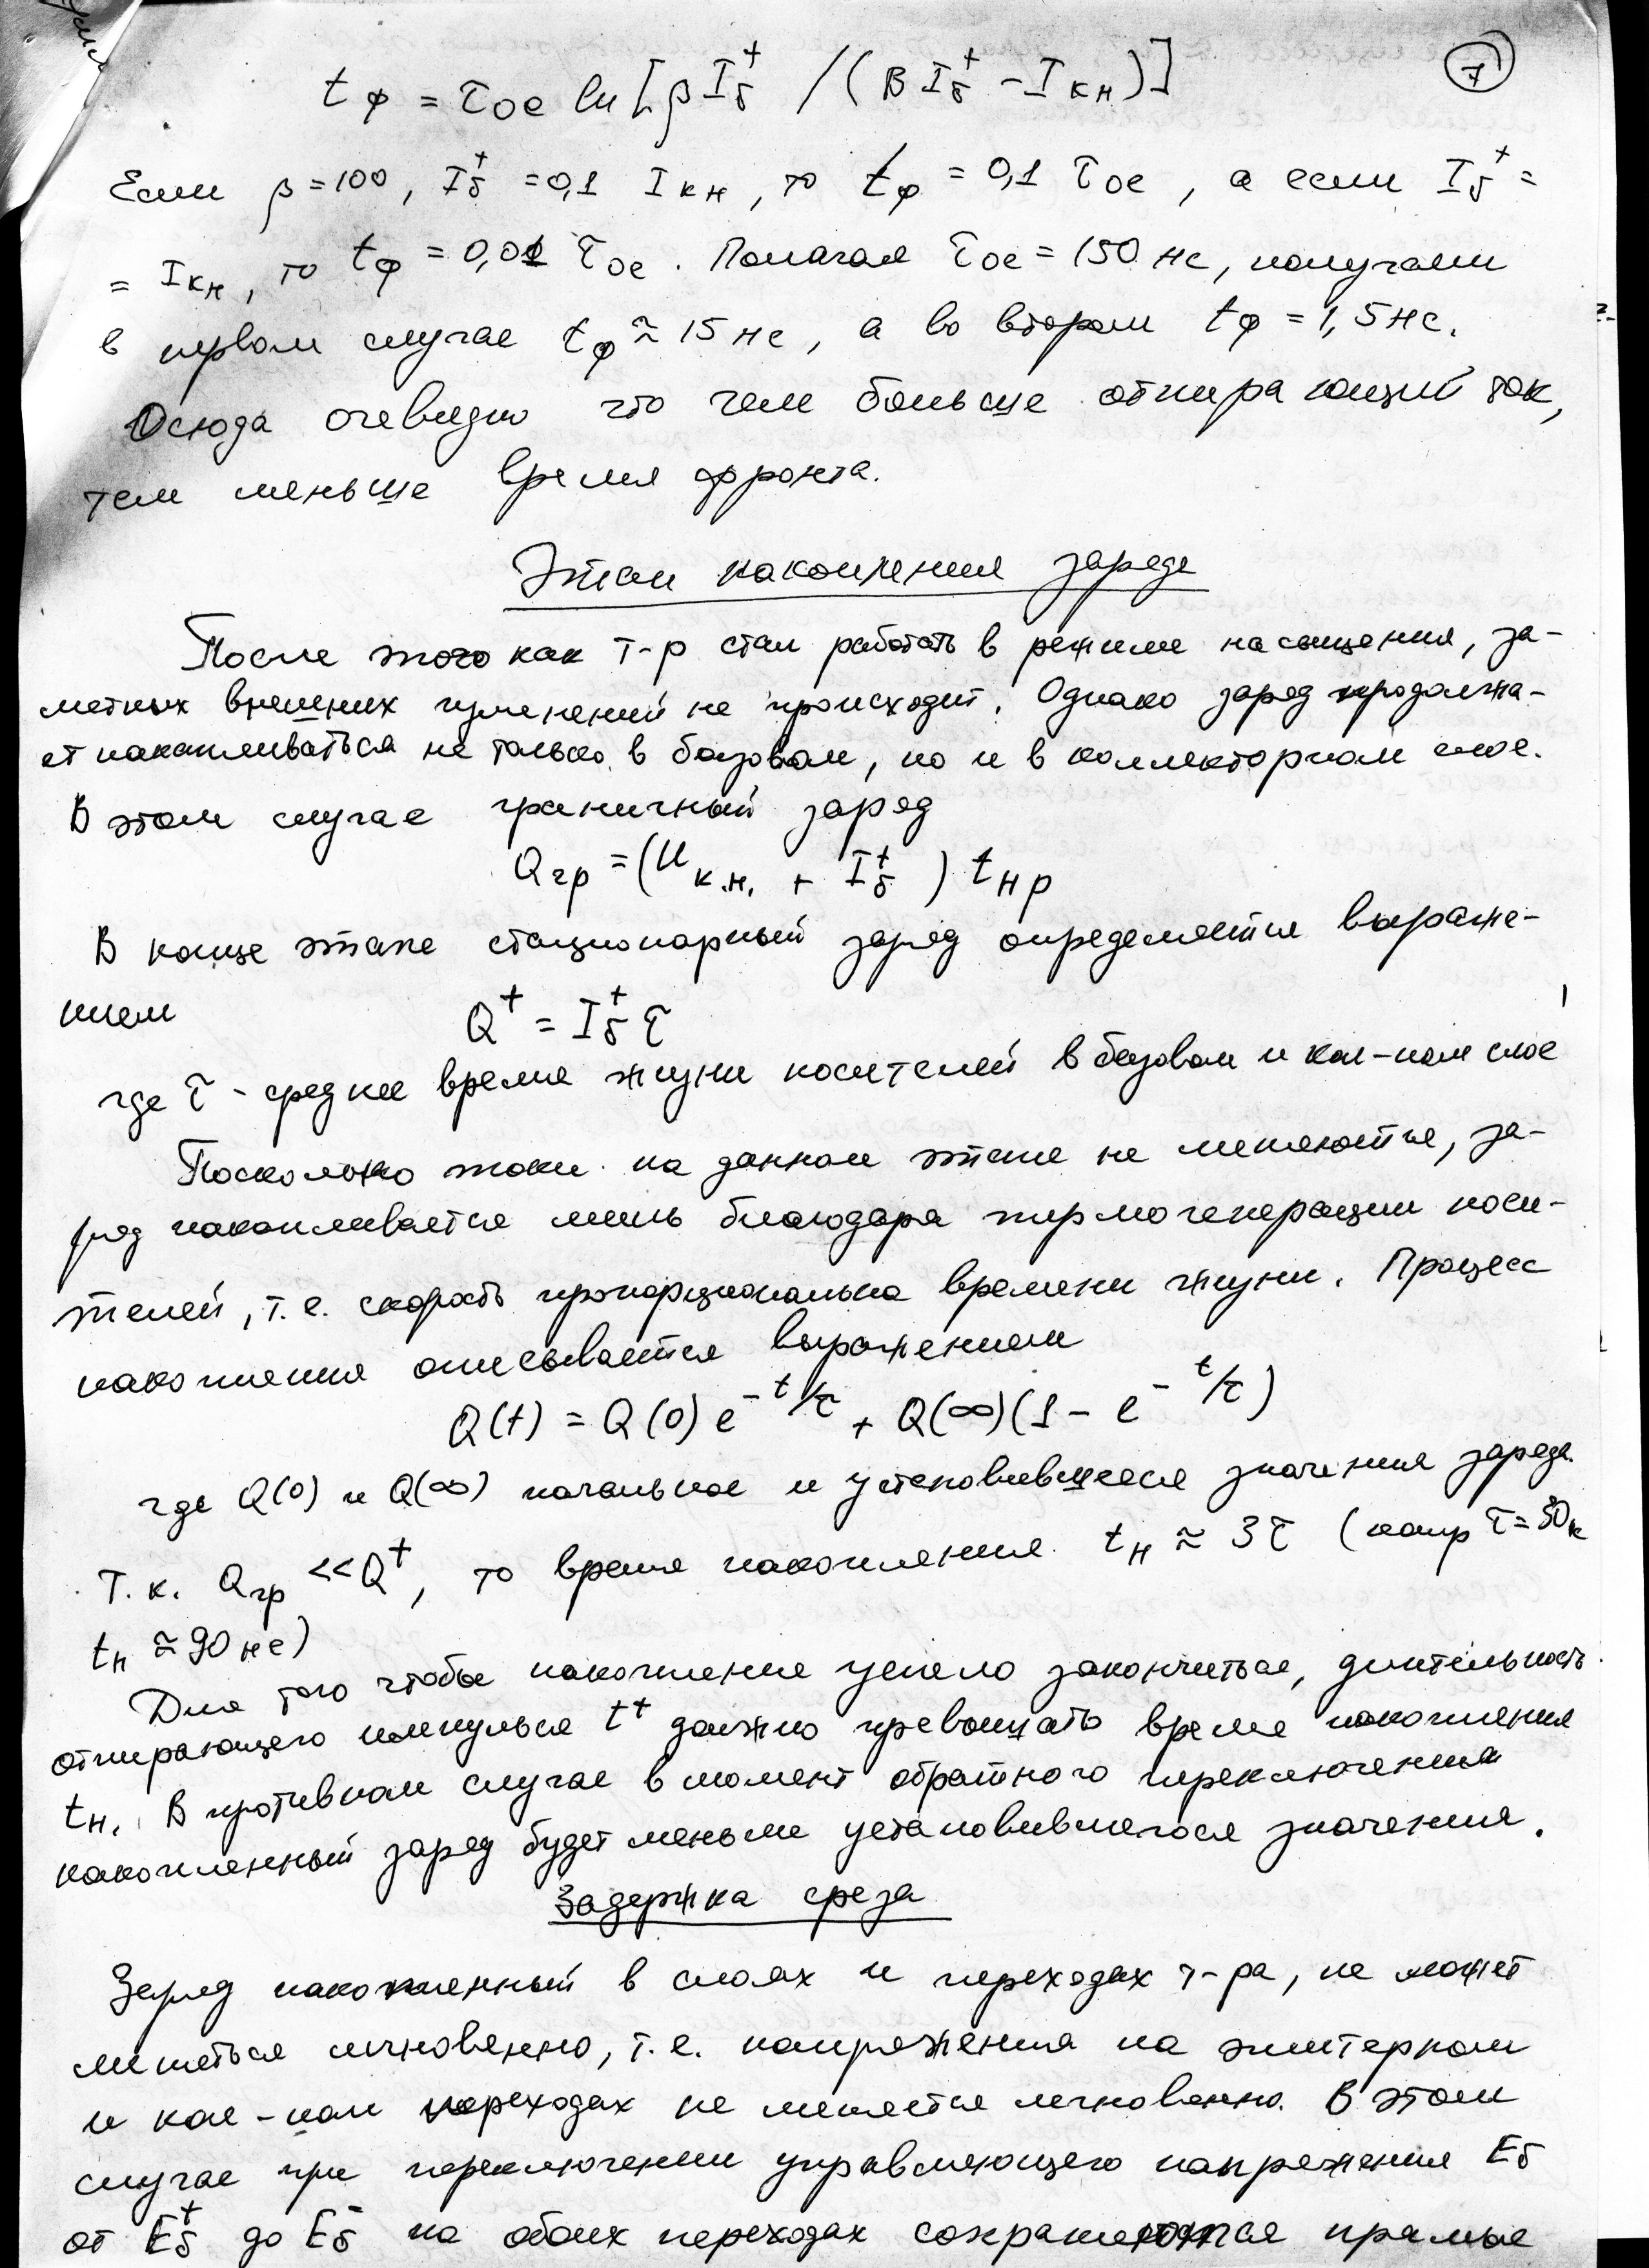 7
tф = τое ln[βIб⁺ /(BIб⁺ - Iкн)]
Если β=100, Iб⁺ =0,1 Iкн, то tф = 0,1 τое, а если Iб⁺ =
= Iкн, то tф = 0,01 τое. Полагая τое = 150 нс, получаем
в первом случае tф ≈ 15 нс, а во втором tф = 1,5 нс.
Осюда очевидно что чем больше отпирающий ток,
тем меньше время фронта.
Этап накопления заряда
После этого как т-р стал работать в режиме насыщения, за-
метных внешних изменений не происходит. Однако заряд продолжа-
ет накапливаться не только в базовом, но и в коллекторном слое.
В этом случае граничный заряд
Qгр = (Uк.н. + Iб⁺) tнр
В конце этапа стационарный заряд определяется выраже-
нием
Q⁺ = Iб⁺ τ
где τ - среднее время жизни носителей в базовом и кол-ном слое
Поскольно токи на данном этапе не меняются, за-
ряд накапливается лишь благодаря термогенерации носи-
телей, т.е. скорость пропорциональна времени жизни. Процесс
накопления описывается выражением
Q(t) = Q(0) e^(-t/τ) + Q(∞)(1 - e^(-t/τ))
где Q(0) и Q(∞) начальное и установившееся значения заряда.
Т.к. Qгр << Q⁺, то время накопления tн ≈ 3τ (напр τ=30н
tн ≈ 90 нс)
Для того чтобы накопление успело закончиться, длительность
отпирающего импульса t⁺ должно превышать время накопления
tн. В противном случае в момент обратного переключения
накопленный заряд будет меньше установившегося значения.
Задержка среза
Заряд накопленный в слоях и переходах т-ра, не может
меняться мгновенно, т.е. напряжения на эмитерном
и кол-ном переходах не меняется мгновенно. В этом
случае при переключении управляющего напряжения Eб
от Eб⁺ до Eб⁻ на обоих переходах сохраняются прямые